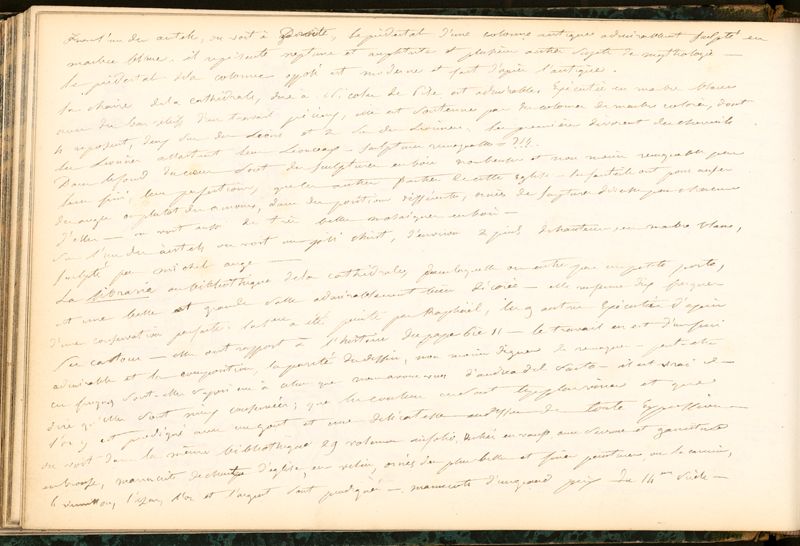 Dans l'un des autels, on voit à droite, le piédestal d'une colonne antique admirablement sculpté en
marbre blanc. il représente neptune et amphitrite et plusieurs autres sujets de mythologie —
le piédestal de la colonne opposé est moderne et fait d'après l'antique.
la chaire de la cathédrale, due à Nicolas de Pise est admirable. Exécutée en marbre blanc
avec des bas reliefs d'un travail précieux, elle est soutenue par des colonnes de marbre coloré, dont
4 reposent, deux sur des Lions et 2 sur des Lionnes. les premiers dévorent des chevreuils
les Lionnes allaitent leurs Lionceaux — sculpture remarquable — ?!!.
Dans le fond du chœur sont des sculptures en bois nombreuses et non moins remarquables pour
leur fini, leur perfection, que les autres parties de cette église — les fauteuils ont pour
des anges ou plutôt des amours, dans des positions différentes, ornés de sculptures
d'elles — on voit aussi de très belles mosaïques en bois —
Sur l'un des autels on voit un joli christ, d'environ 2 pieds de hauteur en marbre blanc,
sculpté par michel ange —
La libraria ou bibliothèque de la cathédrale dans laquelle on entre par une petite porte,
est une belle et grande salle admirablement bien décorée — elle renferme dix fresques
d'une conservation parfaite. la 1ère a été peinte par Raphaël, les 9 autres Exécutées d'après
ses cartons — elles ont rapport à l'histoire du pape Pie II — le travail en est d'un fini
admirable et la composition, la pureté du dessin, non moins dignes de remarque — peut-être
ces fresques sont-elles supérieures à celles que nous avons vues d'andrea del Sarto — il est vrai de
dire qu'elles sont mieux conservées; que les couleurs en sont très plus vives et que
l'or y est prodigué avec un goût et une délicatesse audessus de toute Expression —
on voit dans la même bibliothèque 29 volumes infolio, en
en bronze, manuscrits de chants d'église, en vélin, ornés des plus belles et fines peintures, où le carmin,
le vermillon, l'azur, l'or et l'argent sont prodigués — manuscrits d'un grand prix du 14me siècle —